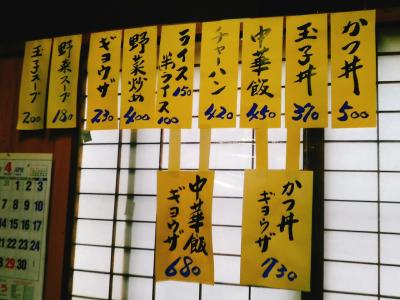 かつ丼
500
玉子丼
370
中華飯
450
チャーハン
420
ライス 150
半ライス 100
野菜炒め
400
ギョウザ
230
野菜スープ
180
玉子スープ
200
かつ丼
ギョウザ
730
中華飯
ギョウザ
680
4
1 2 3
8 9 10
15 16 17
22 23 24
29 30